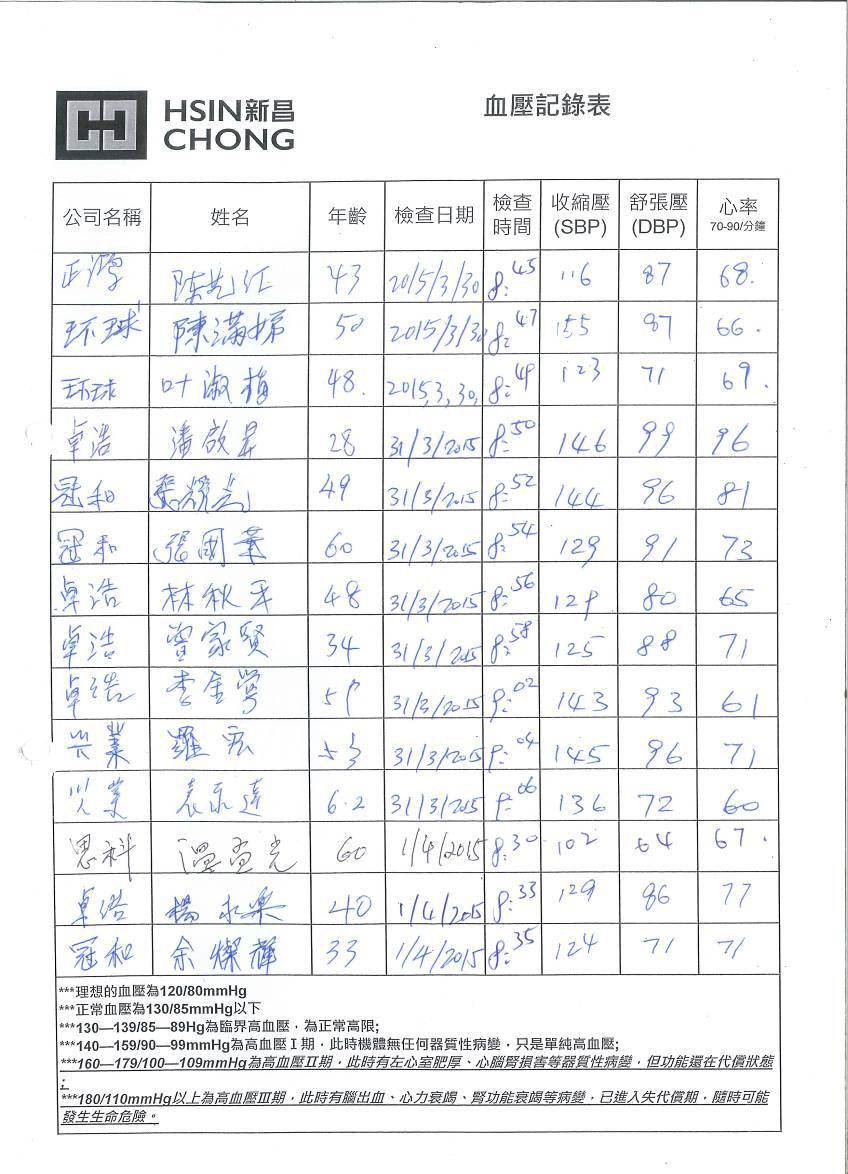 HSIN新昌
CHONG
血壓記錄表
公司名稱 姓名 年齡 檢查日期 檢查時間 收縮壓(SBP) 舒張壓(DBP) 心率 70-90/分鐘
正鴻 陈先仁 43 2015/3/30 8:45 116 87 68.
环球 陳滿娣 50 2015/3/30 8:47 155 87 66.
环球 叶淑梅 48. 2015,3,30, 8:49 123 71 69.
卓浩 潘啟昇 28 31/3/2015 8:50 146 99 96
冠和 49 31/3/2015 8:52 144 96 81
冠和 張國華 60 31/3/2015 8:54 129 91 73
卓浩 林秋平 48 31/3/2015 8:56 129 80 65
卓浩 家賢 34 31/3/2015 8:58 125 88 71
卓浩 李金 59 31/3/2015 9:02 143 93 61
兴業 羅宏 53 31/3/2015 9:04 145 96 71
兴業 袁 62 31/3/2015 9:06 136 72 60
思科 光 60 1/4/2015 8:30 102 64 67.
卓浩 楊永樂 40 1/4/2015 8:33 129 86 77
冠和 余燦輝 33 1/4/2015 8:35 124 71 71
***理想的血壓為120/80mmHg
***正常血壓為130/85mmHg以下
***130—139/85—89Hg為臨界高血壓，為正常高限;
***140—159/90—99mmHg為高血壓Ⅰ期，此時機體無任何器質性病變，只是單純高血壓;
***160—179/100—109mmHg為高血壓Ⅱ期，此時有左心室肥厚、心腦腎損害等器質性病變，但功能還在代償狀態
;
***180/110mmHg以上為高血壓Ⅲ期，此時有腦出血、心力衰竭、腎功能衰竭等病變，已進入失代償期，隨時可能
發生生命危險。